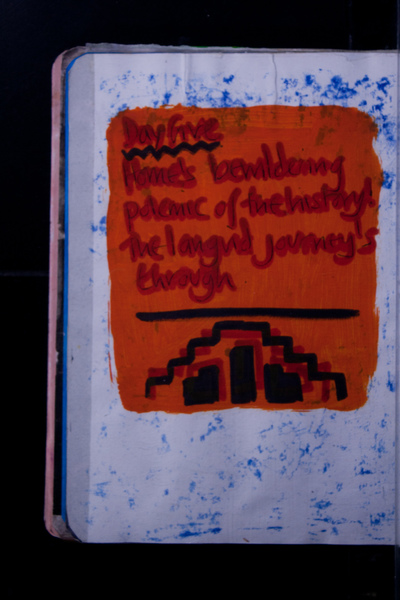 Day Five
Rome's bewildering
polemic of the history!
The languid journey's
through